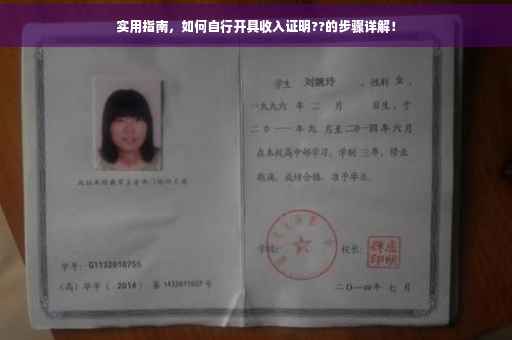 实用指南，如何自行开具收入证明??的步骤详解！
学生 刘婉玲 ，性别 女 ，
一九九六 年 二 月 日生，于
二〇一一 年九 月至二〇一四年六月
在本校高中部学习，学制 三年，修业
期满，成绩合格，准予毕业。
学校： 校长：
二〇一四年 七 月
学号：G1132010755
（高）毕字（ 2014 ）第 1432011027 号